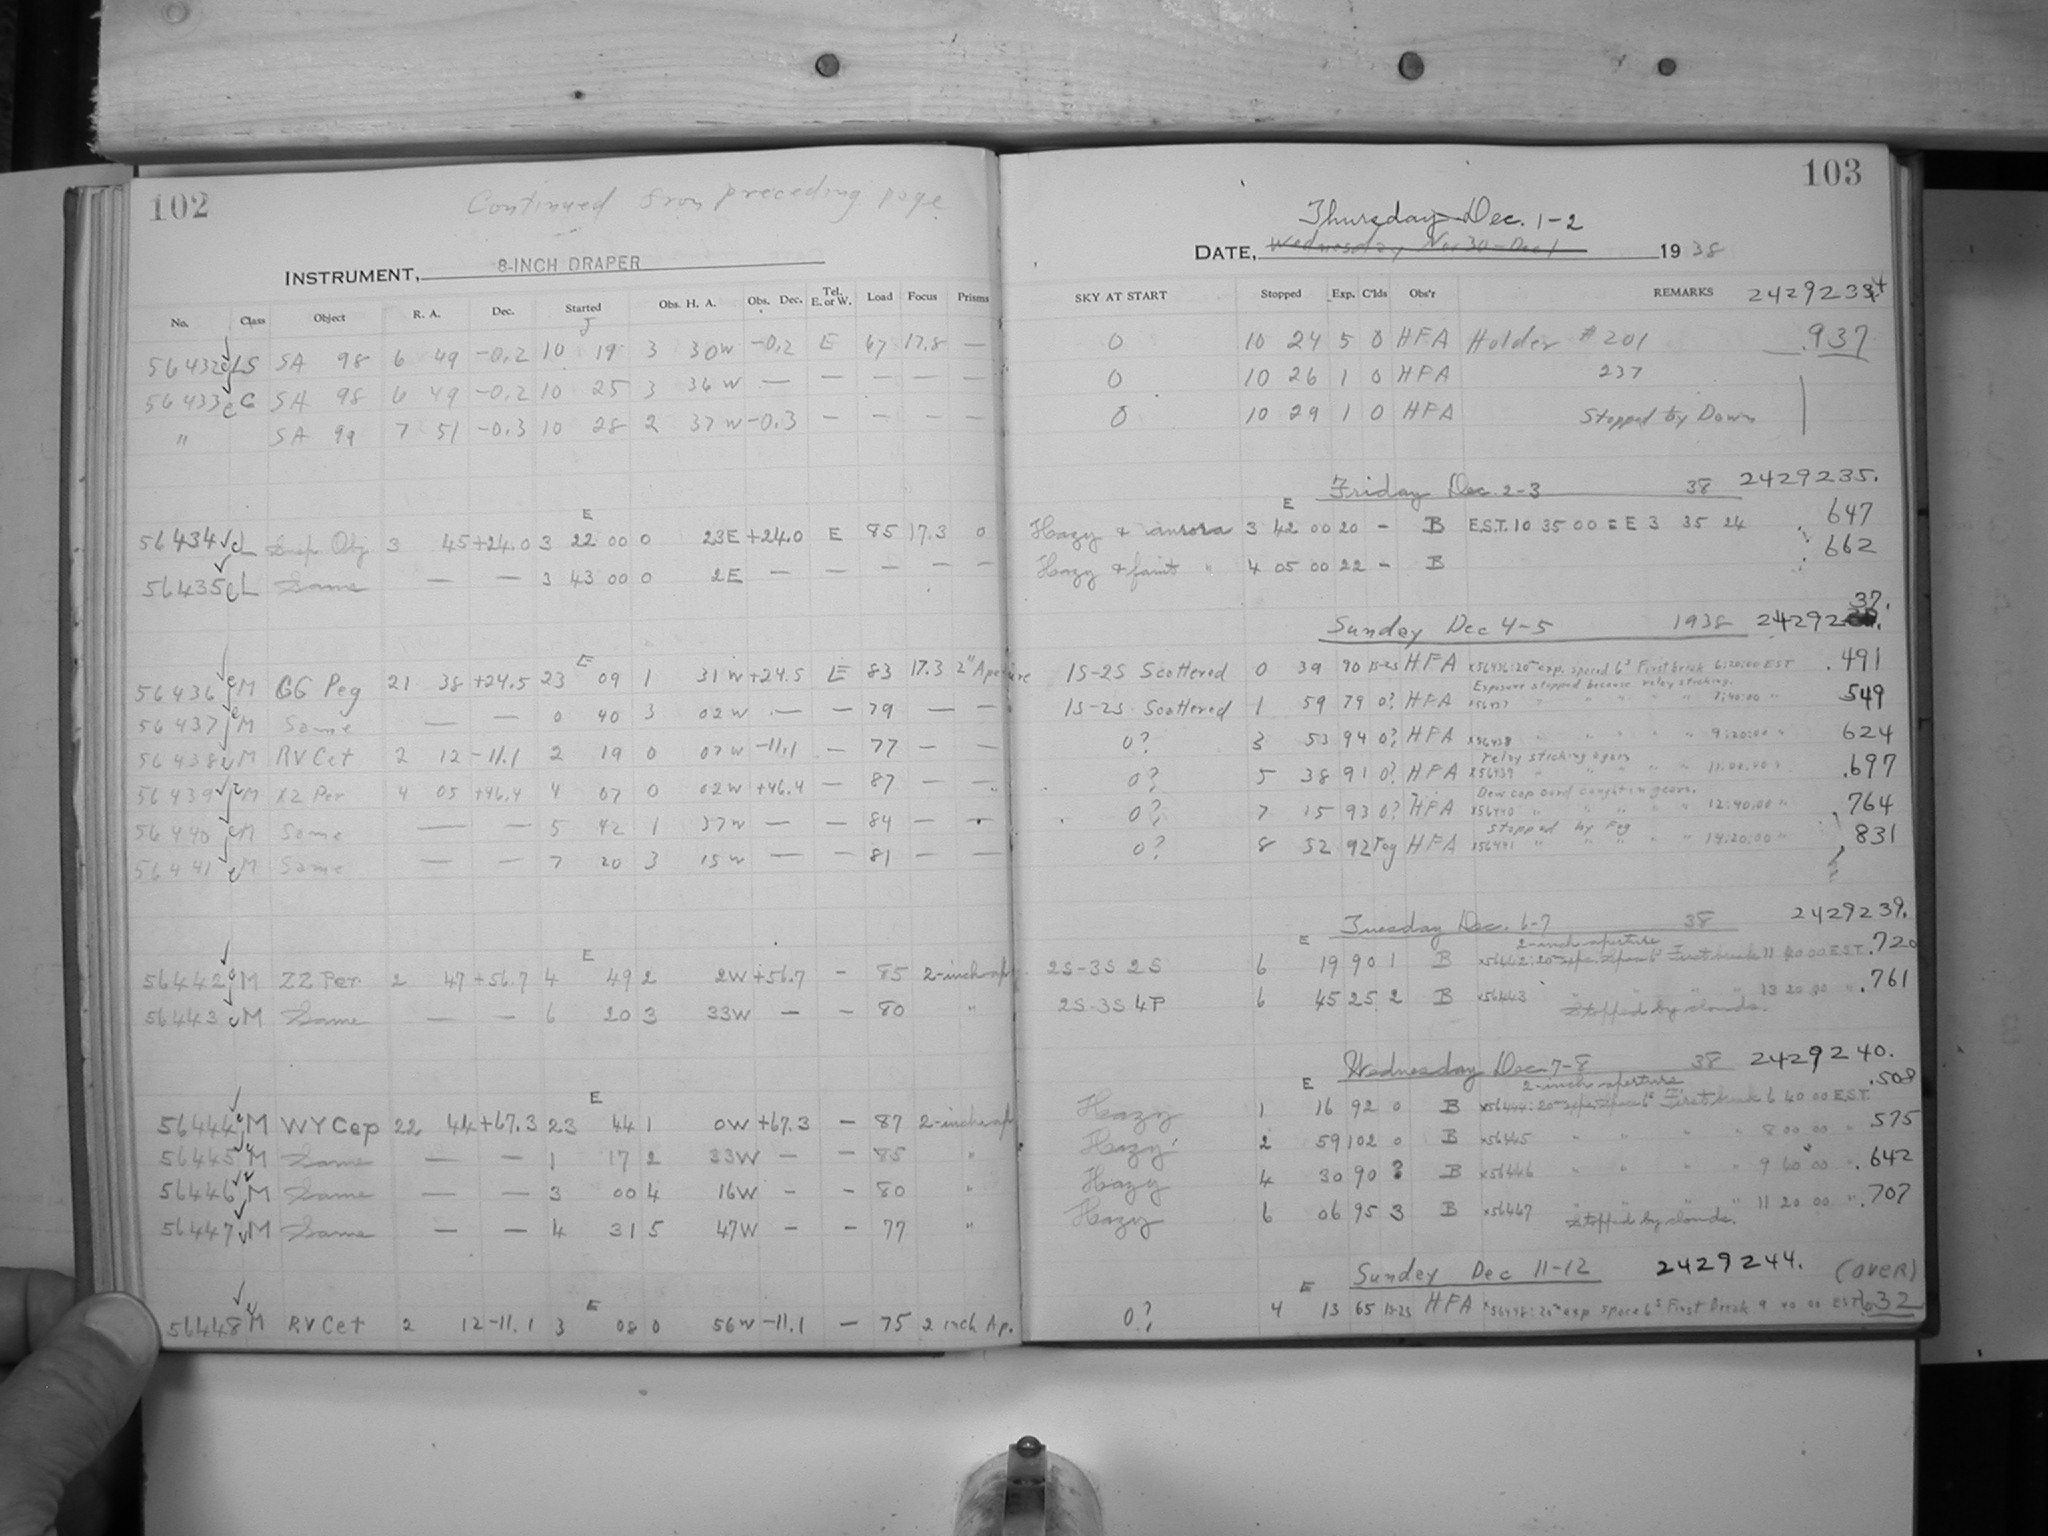 102
Continued from preceding page
INSTRUMENT, 8-INCH DRAPER
No. Class Object R. A. Dec. Started Obs. H. A. Obs. Dec. Tel. E. or W. Load Focus Prisms
J
56432 LS SA 98 6 49 -0.2 10 19 3 30W -0.2 E 67 17.8 —
56433 C SA 98 6 49 -0.2 10 25 3 36W — — — — —
" SA 99 7 51 -0.3 10 28 2 37W -0.3 — — — —
E
56434 L Obj 3 45 +24.0 3 22 00 0 23E +24.0 E 85 17.3 0
56435 L Same — — 3 43 00 0 2E — — — — —
E
56436 M GG Peg 21 38 +24.5 23 09 1 31W +24.5 E 83 17.3 2" Aperture
56437 M Same — — 0 40 3 02W — — 79 — —
56438 M RV Cet 2 12 -11.1 2 19 0 07W -11.1 — 77 — —
56439 M XZ Per 4 05 +46.4 4 07 0 02W +46.4 — 87 — —
56440 M Same — — 5 42 1 37W — — 84 — —
56441 M Same — — 7 20 3 15W — — 81 — —
E
56442 M ZZ Per 2 47 +56.7 4 49 2 2W +56.7 — 85 2-inch ap.
56443 M Same — — 6 20 3 33W — — 80 "
E
56444 M WY Cep 22 44 +67.3 23 44 1 0W +67.3 — 87 2-inch ap
56445 M Same — — 1 17 2 33W — — 85 "
56446 M Same — — 3 00 4 16W — — 80 "
56447 M Same — — 4 31 5 47W — — 77 "
E
56448 M RV Cet 2 12 -11.1 3 08 0 56W -11.1 — 75 2 inch Ap.
103
Thursday Dec. 1-2
DATE, Wednesday Nov 30 - Dec 1 1938
SKY AT START Stopped Exp. C'lds Obs'r REMARKS 2429234
0 10 24 5 0 HFA Holder #201 .937
0 10 26 1 0 HFA 237
0 10 29 1 0 HFA Stopped by Dawn
Friday Dec. 2-3 38 2429235.
E
Hazy & aurora 3 42 00 20 - B E.S.T. 10 35 00 = E 3 35 24 647
Hazy & faint " 4 05 00 22 - B 662
37.
Sunday Dec 4-5 1938 24292
1S-2S Scattered 0 39 90 1S-2S HFA x56436: 20m exp. spaced 6s First break 6:20:00 EST .491
Exposure stopped because relay sticking.
1S-2S Scattered 1 59 79 0? HFA x56437 " " " " 7:40:00 " 549
0? 3 53 94 0? HFA x56438 " " " " 9:20:00 " 624
relay sticking again
0? 5 38 91 0? HFA x56439 " " " " 11:00:00 " .697
Dew cap cord caught in gears.
0? 7 15 93 0? HFA x56440 " " " " 12:40:00 " 764
stopped by Fog
0? 8 52 92 Fog HFA x56441 " " " " 14:20:00 " 831
Tuesday Dec. 6-7 38 2429239.
E 2-inch aperture
2S-3S 2S 6 19 90 1 B First break 11 40 00 E.S.T. .720
2S-3S 4P 6 45 25 2 B x56443 " " " 13 20 00 " .761
Stopped by clouds.
Wednesday Dec 7-8 38 2429240.
E 2-inch aperture .508
Hazy 1 16 92 0 B First break 6 40 00 E.S.T.
Hazy 2 59 102 0 B x56445 " " " " 8 00 00 " 575
Hazy 4 30 90 ? B x56446 " " " " 9 40 00 " .642
Hazy 6 06 95 3 B x56447 " " " " 11 20 00 " .707
Stopped by clouds.
Sunday Dec 11-12 2429244. (OVER)
E
0? 4 13 65 1S-2S HFA x56448: 20m exp space 6s First break 9 40 00 EST .632